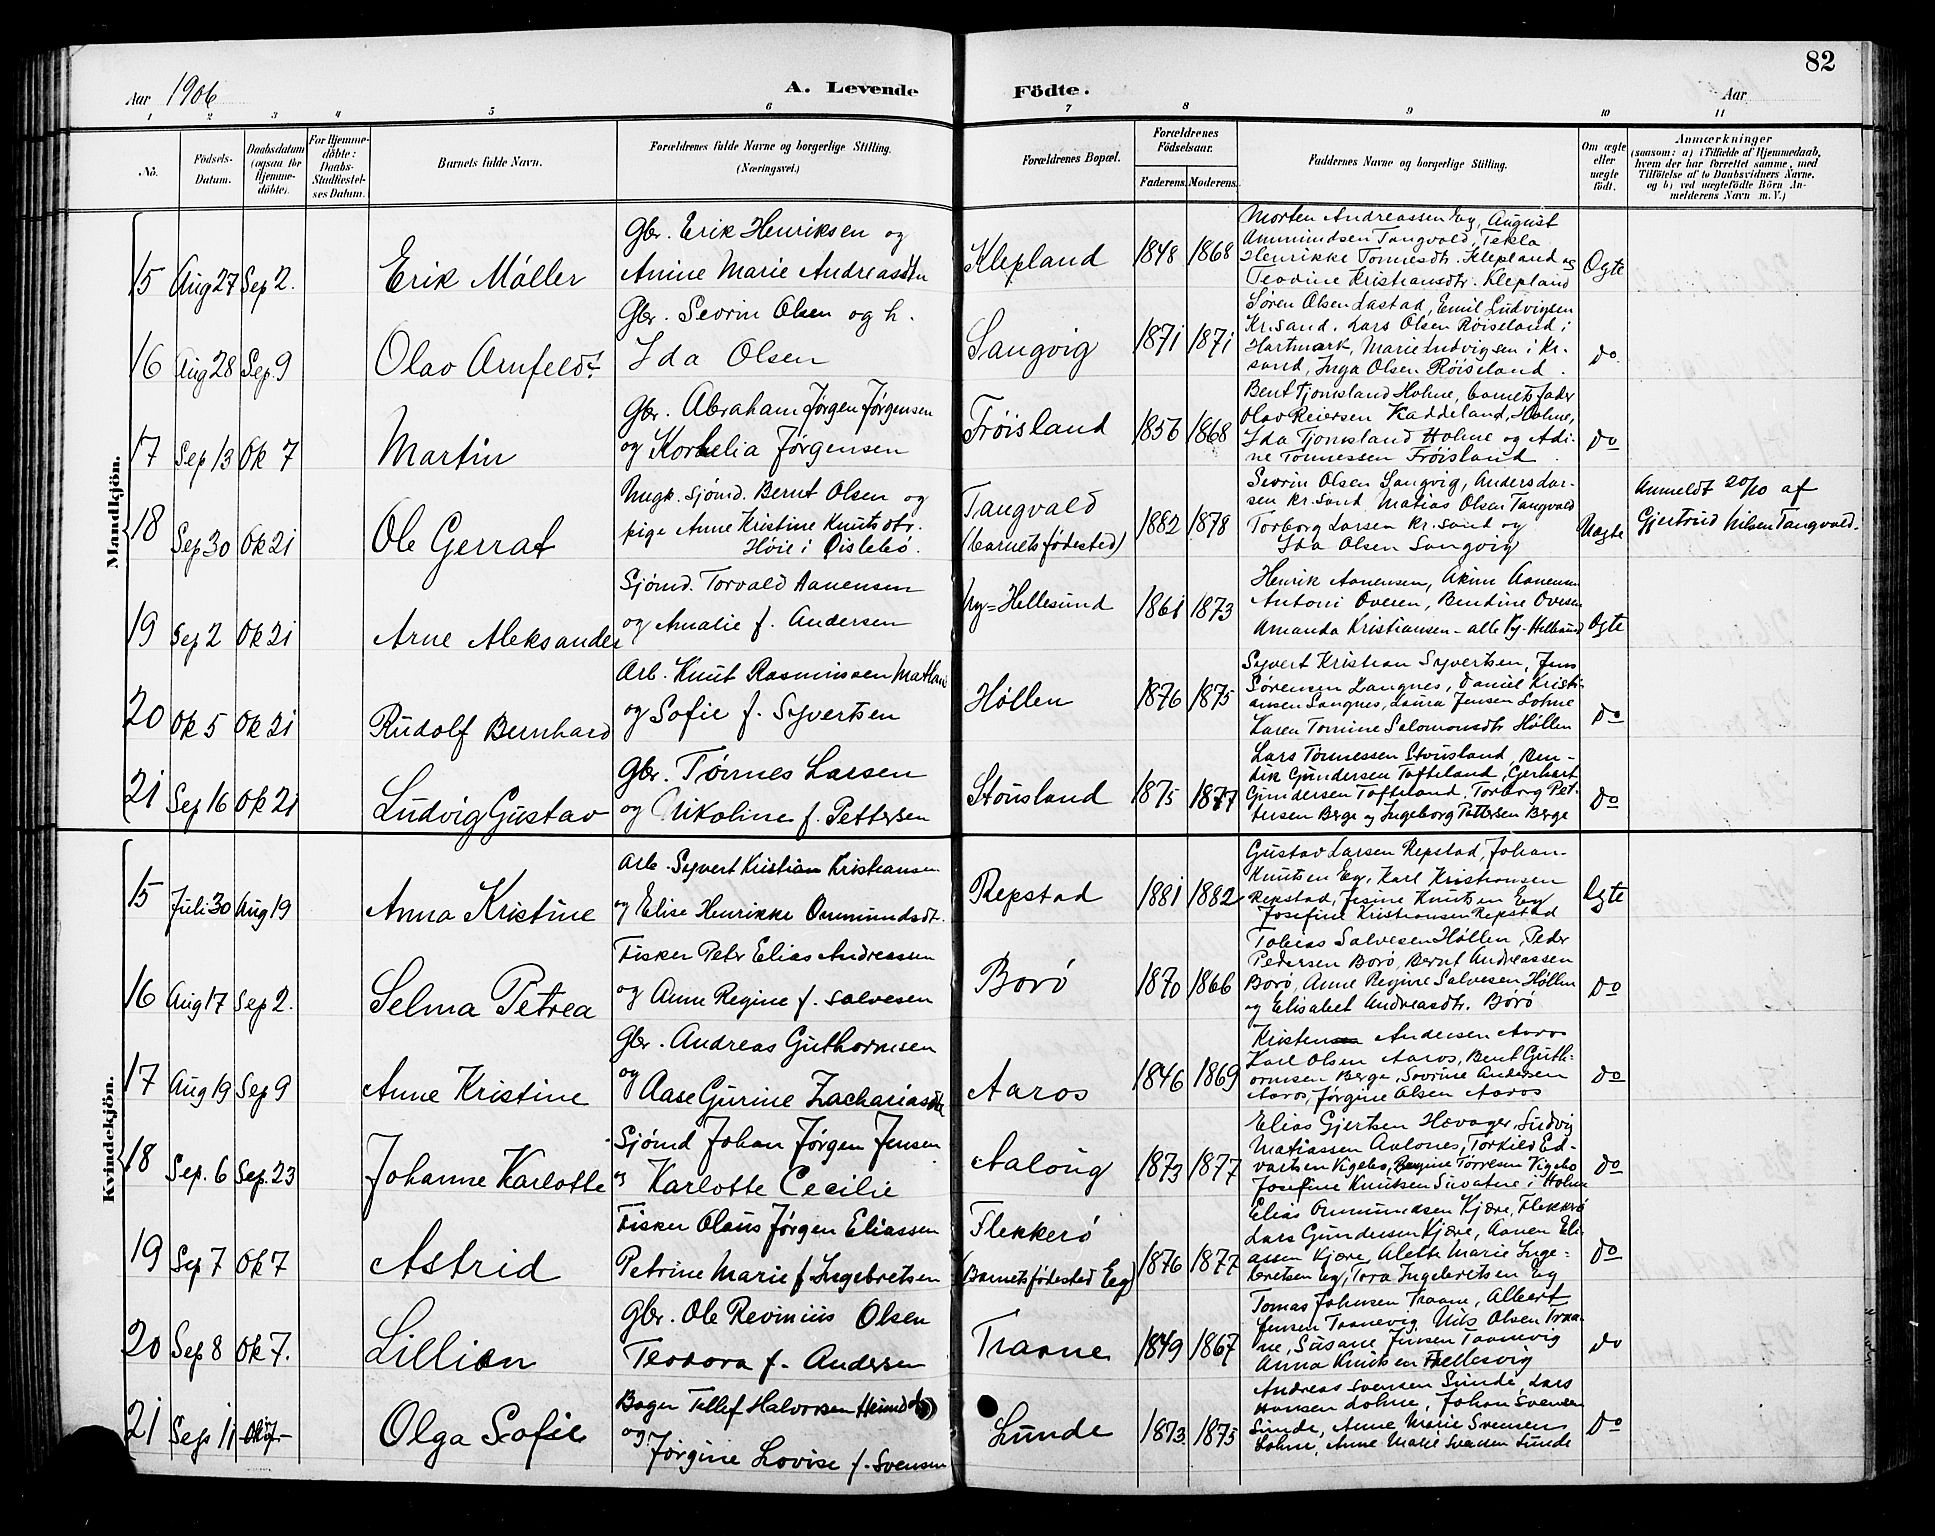 82
Aar 1906
A. Levende
Födte.
Aar
1 2 3 4 5 6 7 8 9 10 11
No.
Födsels-
Datum.
Daabsdatum
(ogsaa for
Hjemme-
döbte).
For Hjemme-
döbte:
Daabs-
Stadfæstel-
ses Datum.
Barnets fulde Navn.
Forældrenes fulde Navne og borgerlige Stilling.
(Næringsvei.)
Forældrenes Bopæl.
Forældrenes
Födselsaar.
Faderens. Moderens.
Faddernes Navne og borgerlige Stilling.
Om ægte
eller
uægte
födt.
Anmærkninger
(saasom: a) i Tilfælde af Hjemmedaab,
hvem der har forrettet samme, med
Tilföielse af to Daabsvidners Navne.
og b) ved uægtefödte Börn An-
melderens Navn m. V.)
Mandkjön.
15 Aug 27 Sep 2. Erik Møller
Gbr. Erik Henriksen og
Anine Marie Andreasdtr
Klepland 1848 1868
Morten Andreassen Eg, August
Ammundsen Tangvald, Tekla
Henrikke Tønnesdtr. Klepland og
Teodine Kristiansdtr. Klepland
Ægte
16 Aug 28 Sep. 9 Olav Arnfeldt
Gbr. Sevrin Olsen og h.
Ida Olsen
Langvig 1871 1871
Søren Olsen Lastad, Emil Ludvigsen
Kr.sand, Lars Olsen Røiseland i
Hartmark, Marie Ludvigsen i Kr.
sand, Inga Olsen Røiseland.
do.
17 Sep 13 Ok 7 Martin
Gbr. Abraham Jørgen Jørgensen
og Kornelia Jørgensen
Frøisland 1856 1868
Bent Tjomsland Holme, barnets fader
Olav Reiersen Kaddeland, Holme,
Ida Tjomsland Holme og Adi-
ne Tønnessen Frøisland.
do
18 Sep 30 Ok 21 Ole Gerrat
Ungk. sjømd. Bernt Olsen og
pige Anne Kristine Knutsdtr.
Høie i Øislebø.
Tangvald
(barnets fødested)
1882 1878
Sevrin Olsen Langvig, Anders Lar-
sen Kr.sand Matias Olsen Tangvald
Torborg Larsen Kr.sand og
Ida Olsen Langvig
Uægte
Anmeldt 20/10 af
Gjertrud Nilsen Tangvald.
19 Sep 2 Ok 21 Arne Aleksander
Sjømd. Torvald Aanensen
og Amalie f. Andersen
Ny-Hellesund 1861 1873
Henrik Aanensen, Akim Aanensen
Antoni Ovesen, Bendine Ovesen
Amanda Kristiansen - alle Ny-Hellesund
Ægte
20 Ok 5 Ok 21 Rudolf Bernhard
Arb. Knut Rasmussen
og Sofie f. Syvertsen
Høllen 1876 1875
Syvert Kristian Syvertsen, Jens
Sørensen Langnes, Daniel Kristi-
ansen Langnes, Laura Jensen Lohne
Karen Tomine Salomonsdtr Høllen
do
21 Sep 16 Ok 21 Ludvig Gustav
Gbr. Tønnes Larsen
og Nikoline f. Pettersen
Stousland 1875 1877
Lars Tønnessen Stousland, Ben-
dik Gundersen Tofteland, Gerhart
Gundersen Tofteland, Torborg Pet-
tersen Berge og Ingeborg Pettersen Berge
do
Kvindekjön.
15 Juli 30 Aug 19 Anna Kristine
Arb. Syvert Kristian Kristiansen
og Elise Henrikke Ommundsdt.
Repstad 1881 1882
Gustav Larsen Repstad, Johan
Knutsen Eg, Karl Kristiansen
Repstad, Jesine Knutsen Eg
Josefine Kristiansen Repstad
Ægte
16 Aug 17 Sep 2. Selma Petrea
Fisker Peter Elias Andreassen
og Anne Regine f. Salvesen
Borø 1870 1866
Tobias Salvesen Høllen, Peder
Pedersen Borø, Bernt Andreassen
Borø, Anne Regine Salvesen Høllen
og Elisabet Andreasdtr. Borø
do
17 Aug 19 Sep 9 Anne Kristine
Gbr. Andreas Guthormsen
og Aase Gurine Zachariasdtr
Aaros 1846 1869
Kristen Andersen Aaros
Karl Olsen Aaros, Bent Guth-
ormsen Berge, Sovrine Andersen
Aaros, Jørgine Olsen Aaros
do
18 Sep. 6 Sep. 23 Johanne Karlotte
Sjømd Johan Jørgen Jensen
og Karlotte Cecilie
Aaloug 1873 1877
Elias Gjertsen Hovager, Ludvig
Matiassen Aalones, Torkild Ed-
vartsen Vigebo, Regine Tørresen Vigebo
Josefine Knutsen i Holme
do
19 Sep 7 Ok 7 Astrid
Fisker Olaus Jørgen Eliassen
Petrine Marie f. Ingebretsen
Flekkerø
(Barnets fødested Eg)
1876 1877
Elias Ommundsen Kjære, Flekkerø
Lars Gundersen Kjære, Aanen Eli-
assen Kjære, Alette Marie Inge-
bretsen Eg, Tora Ingebretsen Eg
do
20 Sep 8 Ok 7. Lillian
Gbr. Ole Revinius Olsen
Teodora f. Andersen
Traane 1849 1867
Tomas Johnsen Traane, Albert
Jensen Taanevig, Nils Olsen Traa-
ne, Susane Jensen Taanevig
Anna Knutsen Hellesvig
do
21 Sep 11 Olga Sofie
Bager Tellef Halvorsen
og Jørgine Lovise f. Svensen
Lunde 1873 1875
Andreas Svensen Sunde, Lars
Hansen Lohne, Johan Svensen
Sunde, Anne Marie Svensen
Lohne, Anne Marie Svensen Sunde
do